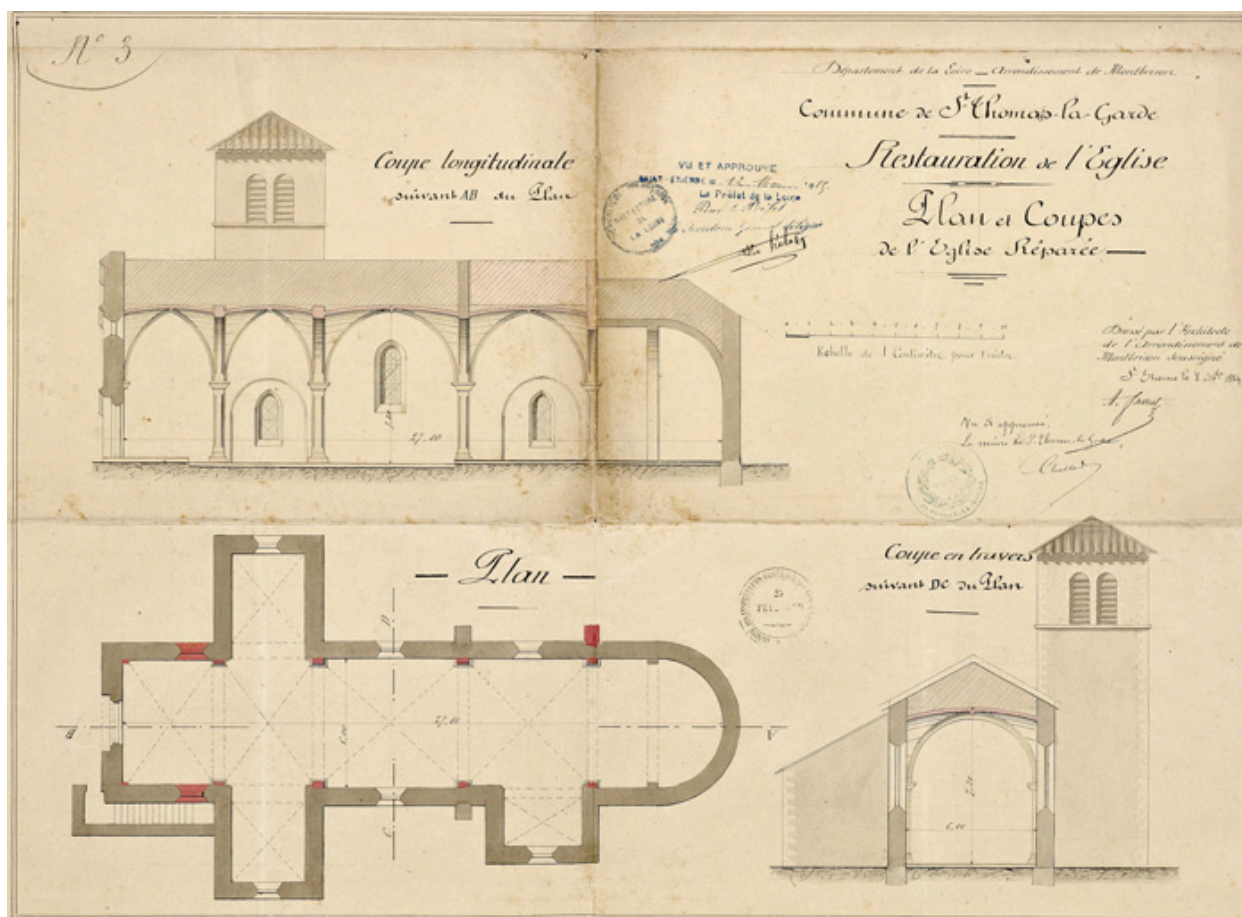 N° 3
Département de la Loire — Arrondissement de Montbrison
Commune de St Thomas-la-Garde
Restauration de l'Eglise
Plan et Coupes
de l'Eglise Réparée
Coupe longitudinale
suivant AB du Plan
VU ET APPROUVÉ
SAINT-ETIENNE le
Le Préfet de la Loire
Pour le Préfet
Secrétaire Général délégué
PREFECTURE
DE
LA LOIRE
Echelle de 1 Centimètre pour 1 mètre
Dressé par l'Architecte
de l'Arrondissement de
Montbrison soussigné
St Etienne le 8
Vu et approuvé
Le maire de St Thomas la Garde
27.10
7.20
Plan
D
B
27.10
6.00
A
C
25
Coupe en travers
suivant DC du Plan
7.20
6.00